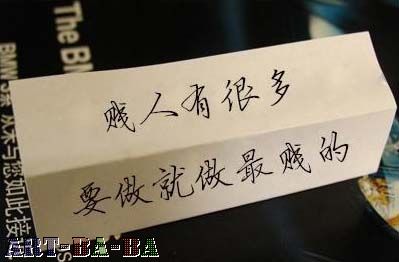 贱人有很多
要做就做最贱的
The BM
BMW3系 从未与您如此接
ART-BA-BA